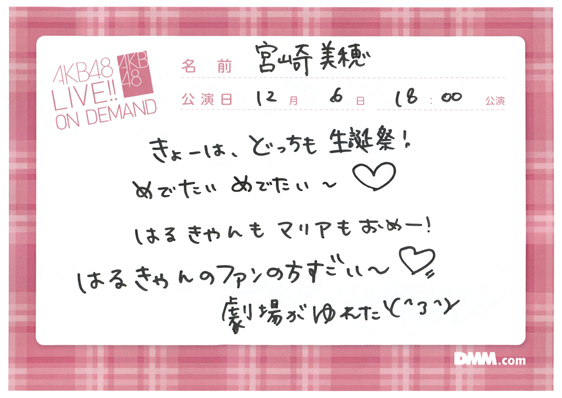 AKB48
LIVE!!
ON DEMAND
AKB
48
名前 宮崎美穂
公演日 12月 6日 18:00 公演
きょーは、どっちも 生誕祭!
めでたい めでたい〜♡
はるきゃんも マリアもおめー!
はるきゃんのファンの方すごいぃ〜♡
劇場がゆれたY(^3^)Y
DMM.com